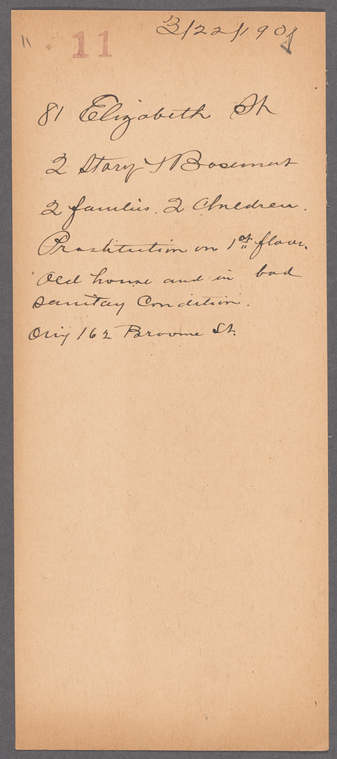 11 3/22/1901
81 Elizabeth St
2 Story & Basement
2 families. 2 Children.
Prostitution on 1st floor.
Old house and in bad
sanitay Condition.
Orig 162 Broome St.